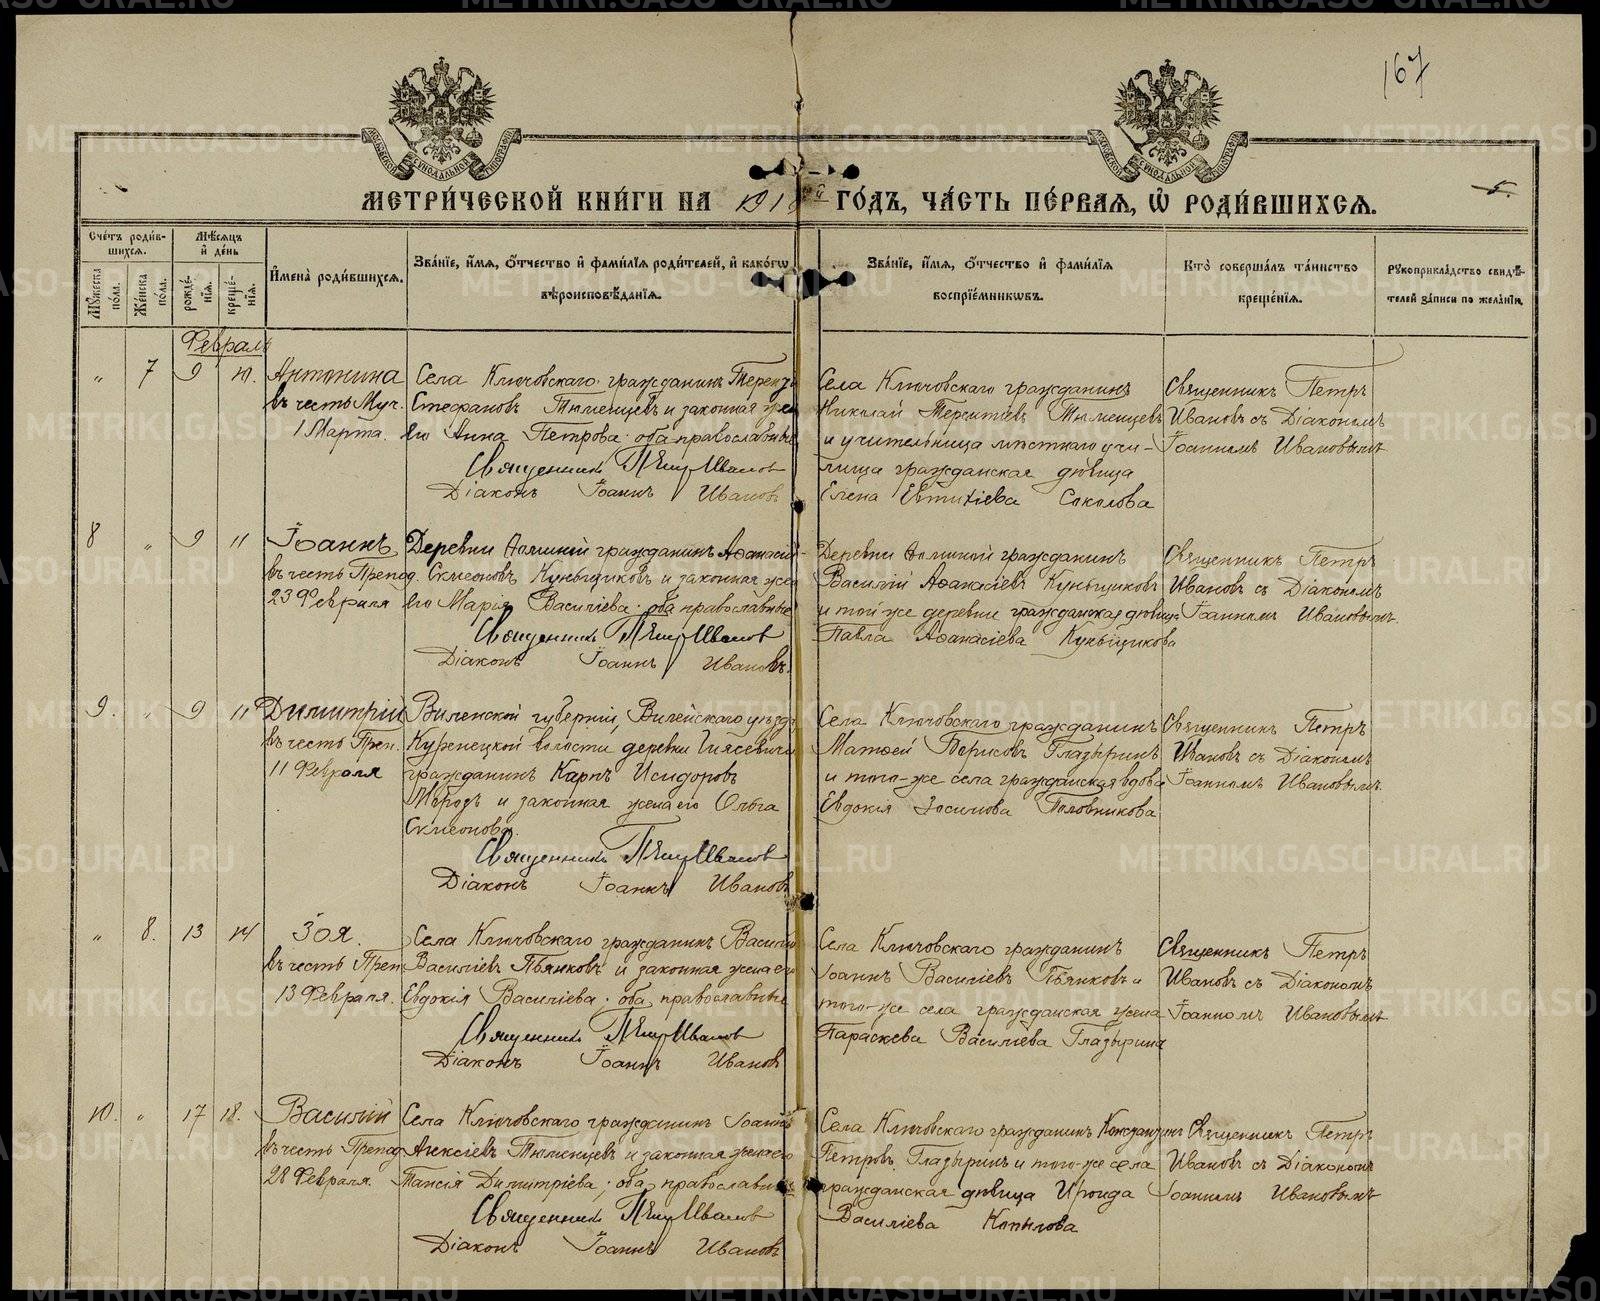 167
МОСКОВСКОЙ СѴНОДАЛЬНОЙ ТИПОГРАФІИ
МОСКОВСКОЙ СѴНОДАЛЬНОЙ ТИПОГРАФІИ
МЕТРИ́ЧЕСКОЙ КНИ́ГИ НА 1918 ГО́ДЪ, ЧА́СТЬ ПЕ́РВАЯ, Ѡ РОДИ́ВШИХСЯ.
Сче́тъ роди́в-
шихся.
Мѣ́сяцъ
и҆ де́нь
Мꙋ́жеска по́ла.
Же́нска по́ла.
рожде́-
нїѧ.
креще́-
нїѧ.
И҆мена̀ роди́вшихсѧ.
Зва́нїе, и҆́мѧ, ѻ҆́тчество и҆ фами́лїѧ роди́телей, и҆ како́гѡ
вѣроисповѣ́данїѧ.
Зва́нїе, и҆́мѧ, ѻ҆́тчество и҆ фами́лїѧ
воспрїе́мникѡвъ.
Кто̀ соверша́лъ та́инство
креще́нїѧ.
Рꙋкоприкла́дство свидѣ́-
телей за́писи по жела́нїю.
Февраль
„ 7 9 10.
Антонина
въ честь Муч.
1 Марта.
Села Ключовскаго гражданинъ Терентій
Стефановъ Тюменцевъ и законная жена
его Анна Петрова. оба православные
Священникъ Петръ Ивановъ
Діаконъ Іоаннъ Ивановъ
Села Ключовскаго гражданинъ
Николай Терентіевъ Тюменцевъ
и учительница мѣстнаго учи-
лища гражданская дѣвица
Елена Евтихіева Соколова
Священникъ Петръ
Ивановъ съ Діакономъ
Іоанномъ Ивановымъ
8 „ 9 11
Іоаннъ
въ честь Препод.
23 Февраля
Деревни гражданинъ Аѳанасій
Симеоновъ Куньщиковъ и законная жена
его Марія Василіева. оба православные
Священникъ Петръ Ивановъ
Діаконъ Іоаннъ Ивановъ.
Деревни гражданинъ
Василій Аѳанасіевъ Куньщиковъ
и той же деревни гражданская дѣвица
Павла Аѳанасіева Куньщикова
Священникъ Петръ
Ивановъ съ Діакономъ
Іоанномъ Ивановымъ.
9. „ 9 11
Димитрій
въ честь Преп.
11 Февраля
Виленской губерніи, Вилейскаго уѣзда,
Куренецкой волости, деревни
гражданинъ Карпъ Исидоровъ
и законная жена его Ольга
Симеонова.
Священникъ Петръ Ивановъ
Діаконъ Іоаннъ Ивановъ
Села Ключовскаго гражданинъ
Матѳей Борисовъ Глазыринъ
и того-же села гражданская вдова
Евдокія Зосимова Половникова
Священникъ Петръ
Ивановъ съ Діакономъ
Іоанномъ Ивановымъ.
„ 8. 13 14
Зоя.
въ честь Преп.
13 Февраля.
Села Ключовскаго гражданинъ Василій
Василіевъ Пьянковъ и законная жена его
Евдокія Василіева. оба православные
Священникъ Петръ Ивановъ
Діаконъ Іоаннъ Ивановъ
Села Ключовскаго гражданинъ
Іоаннъ Василіевъ Пьянковъ и
того-же села гражданская жена
Параскева Василіева Глазырина
Священникъ Петръ
Ивановъ съ Діакономъ
Іоанномъ Ивановымъ
10. „ 17 18.
Василій
въ честь Препод.
28 Февраля.
Села Ключовскаго гражданинъ Іоаннъ
Алексіевъ Тюменцевъ и законная жена его
Таисія Димитріева; оба православные
Священникъ Петръ Ивановъ
Діаконъ Іоаннъ Ивановъ
Села Ключовскаго гражданинъ Константинъ
Петровъ Глазыринъ и того-же села
гражданская дѣвица Ироида
Василіева Копылова
Священникъ Петръ
Ивановъ съ Діакономъ
Іоанномъ Ивановымъ
METRIKI.GASO-URAL.RU